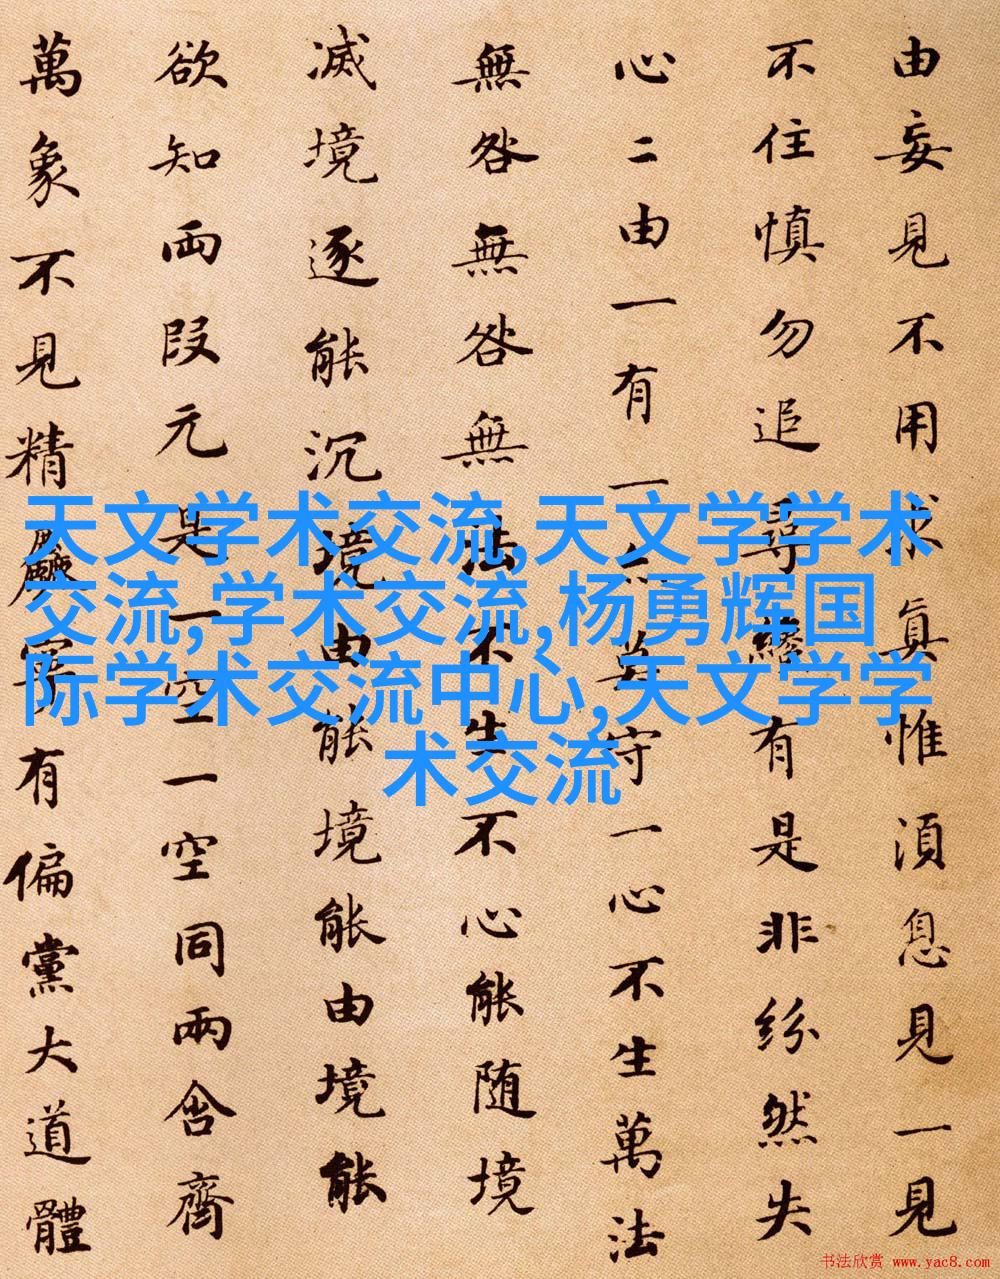 由妄見不用求真惟須息見一見
不住慎勿追尋纔有是非紛然失
心二由一有一亦莫守一心不生萬法
無咎無咎無法不生不心能随境
滅境逐能沉境由能境能由境能
欲知兩段元是一空一空同兩含齊
萬象不見精麤寧有偏黨大道體
天文学术交流,天文学学术
交流,学术交流,杨勇辉国
际学术交流中心,天文学学
术交流
书法欣赏 www.yac8.com